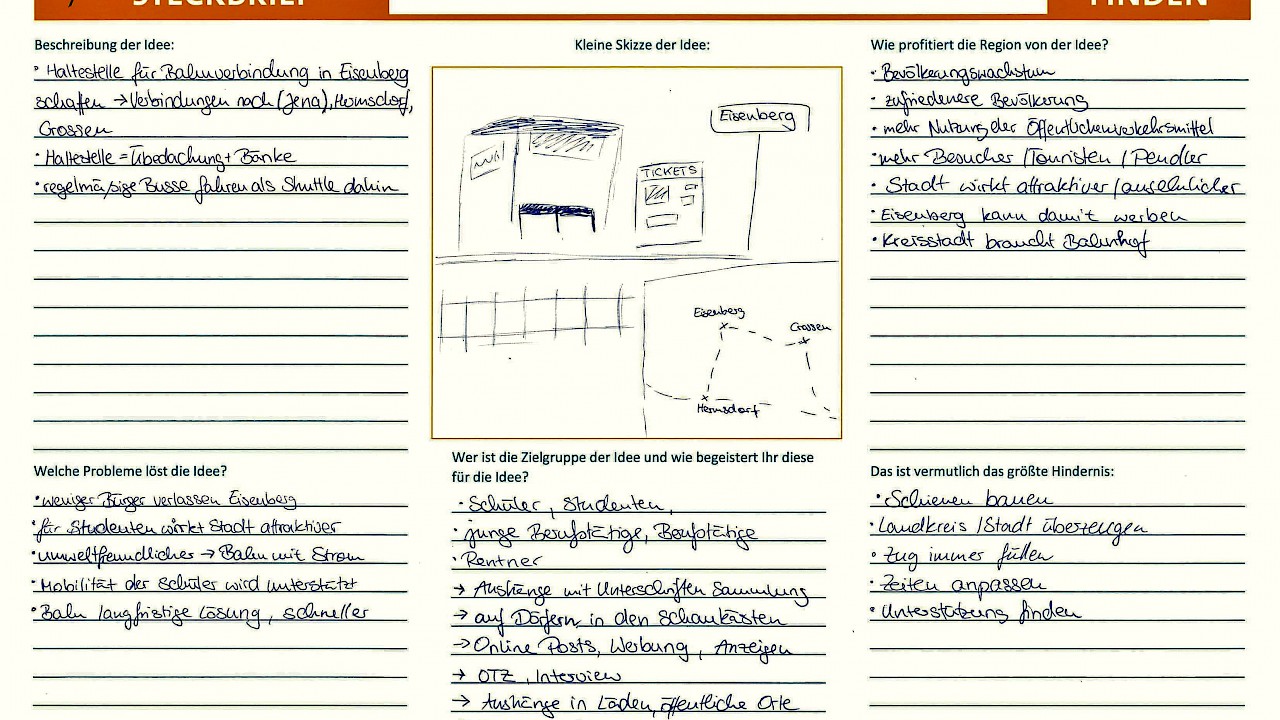 STECKBRIEF
FINDEN
Beschreibung der Idee:
• Haltestelle für Bahnverbindung in Eisenberg
schaffen → Verbindungen nach (Jena), Hermsdorf,
Crossen
• Haltestelle = Überdachung + Bänke
• regelmässige Busse fahren als Shuttle dahin
Kleine Skizze der Idee:
Eisenberg
TICKETS
Eisenberg
Crossen
Hermsdorf
Wie profitiert die Region von der Idee?
• Bevölkerungswachstum
• zufriedenere Bevölkerung
• mehr Nutzung der Öffentlichenverkehrsmittel
• mehr Besucher / Touristen / Pendler
• Stadt wirkt attraktiver / ansehnlicher
• Eisenberg kann damit werben
• Kreisstadt braucht Bahnhof
Welche Probleme löst die Idee?
• weniger Bürger verlassen Eisenberg
• für Studenten wirkt Stadt attraktiver
• umweltfreundlicher → Bahn mit Strom
• Mobilität der Schüler wird unterstützt
• Bahn langfristige Lösung, schneller
Wer ist die Zielgruppe der Idee und wie begeistert Ihr diese
für die Idee?
• Schüler, Studenten,
• junge Berufstätige, Berufstätige
• Rentner
→ Aushänge mit Unterschriften Sammlung
→ auf Dörfern, in den Schaukästen
→ Online Posts, Werbung, Anzeigen
→ OTZ, Interview
→ Aushänge in Läden, öffentliche Orte
Das ist vermutlich das größte Hindernis:
• Schienen bauen
• Landkreis / Stadt überzeugen
• Zug immer füllen
• Zeiten anpassen
• Unterstützung finden